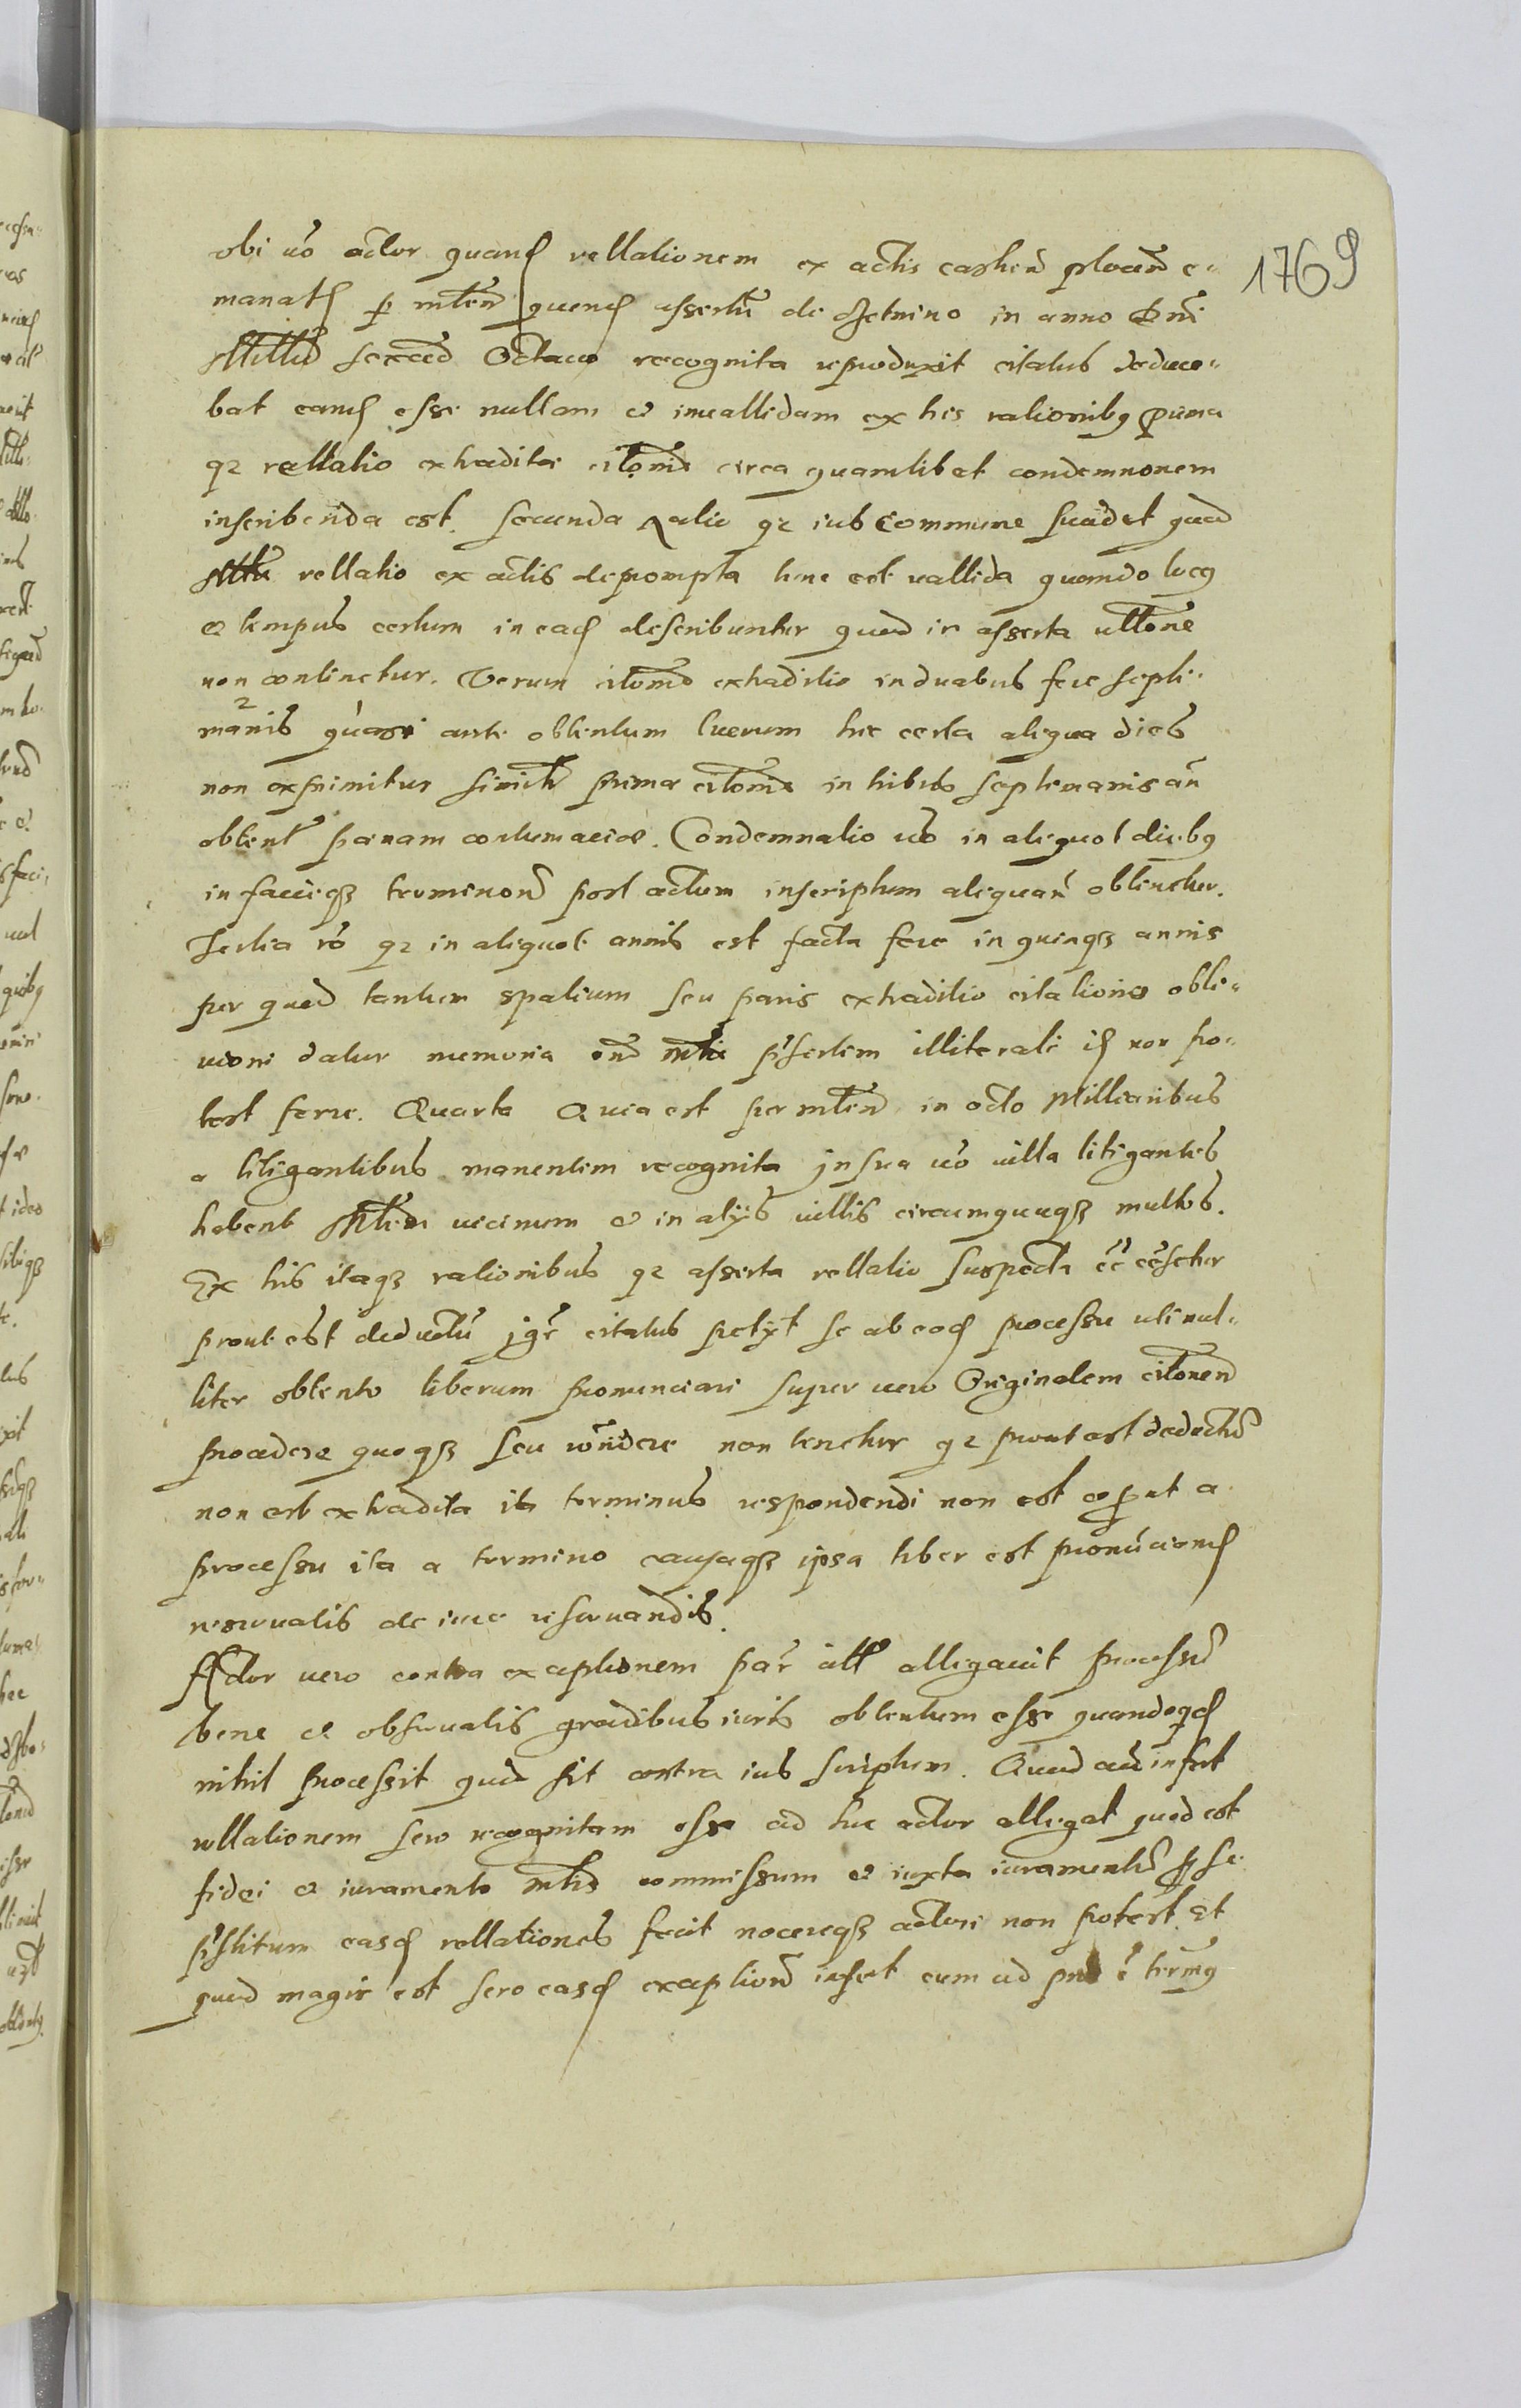 1769
ubi vo actor quand rellationem ex actis castren plocen e-
manat per mlen quend assertu de Jetnino in anno Dni
Millmo sexcen Octavo recognita reproduxit citatus deduce-
bat eand esse nullam et invallidam ex his rationibq prima
qz rellatio extraditae citonis circa quamlibet condemnonem
inscribenda est. Secunda ratio qz ius commune suadet quod
rellatio ex actis deprompta tunc est vallida quando locq
et tempus certum in ead describuntur quod in asserta rltone
non continetur. Verum citonis extraditio in duabus fere septi-
manis quasi ante obtentum lucrum hic certa aliqua dies
non exprimitur similr prima citonis in tribus septimanis an
obtent paenam contumaciae. Condemnatio vo in aliquot diebq
terminon post actum inscriptum aliquan obtinetur.
Tertia ro qz in aliquot annis est facta fere in quinqz annis
per quod tantum spatium seu paris extraditio citationis obli-
vioni datur memoria mlis psertim illiterati id non po-
test ferre. Quarta Quia est per mlen in octo Milliaribus
a litigantibus manentem recognita in sua vo villa litigantes
habent Mlem vicinum et in alijs villis circumquaqz multos.
Ex his itaqz rationibus qz asserta rellatio suspecta ee censetur
prout est deductu igr citatus petyt se ab eod processu uti nul-
liter obtento liberum pronunciari super vero Originalem citonem
procedere quoqz seu rondere non tenetur qz prout est deductu
non est extradita ita terminus respondendi non est et put a
processu ita a termino causaqz ipsa liber est pronunciand
reservatis de iure reservandis.
Actor vero contra exceptionem par allegavit processu
bene et observatis gradibus iuris obtentum esse quandoqd
nihil processit quod sit contra ius scriptum. Quod aut infert
rellationem sero recognitam esse ad huc actor allegat quod est
fidei et iuramento mlis commissum et iuxta iuramentu p se
pstitum easd rellationes fecit nocereqz actori non potest. Et
quod magis est sero easd exception infert cum ad termq